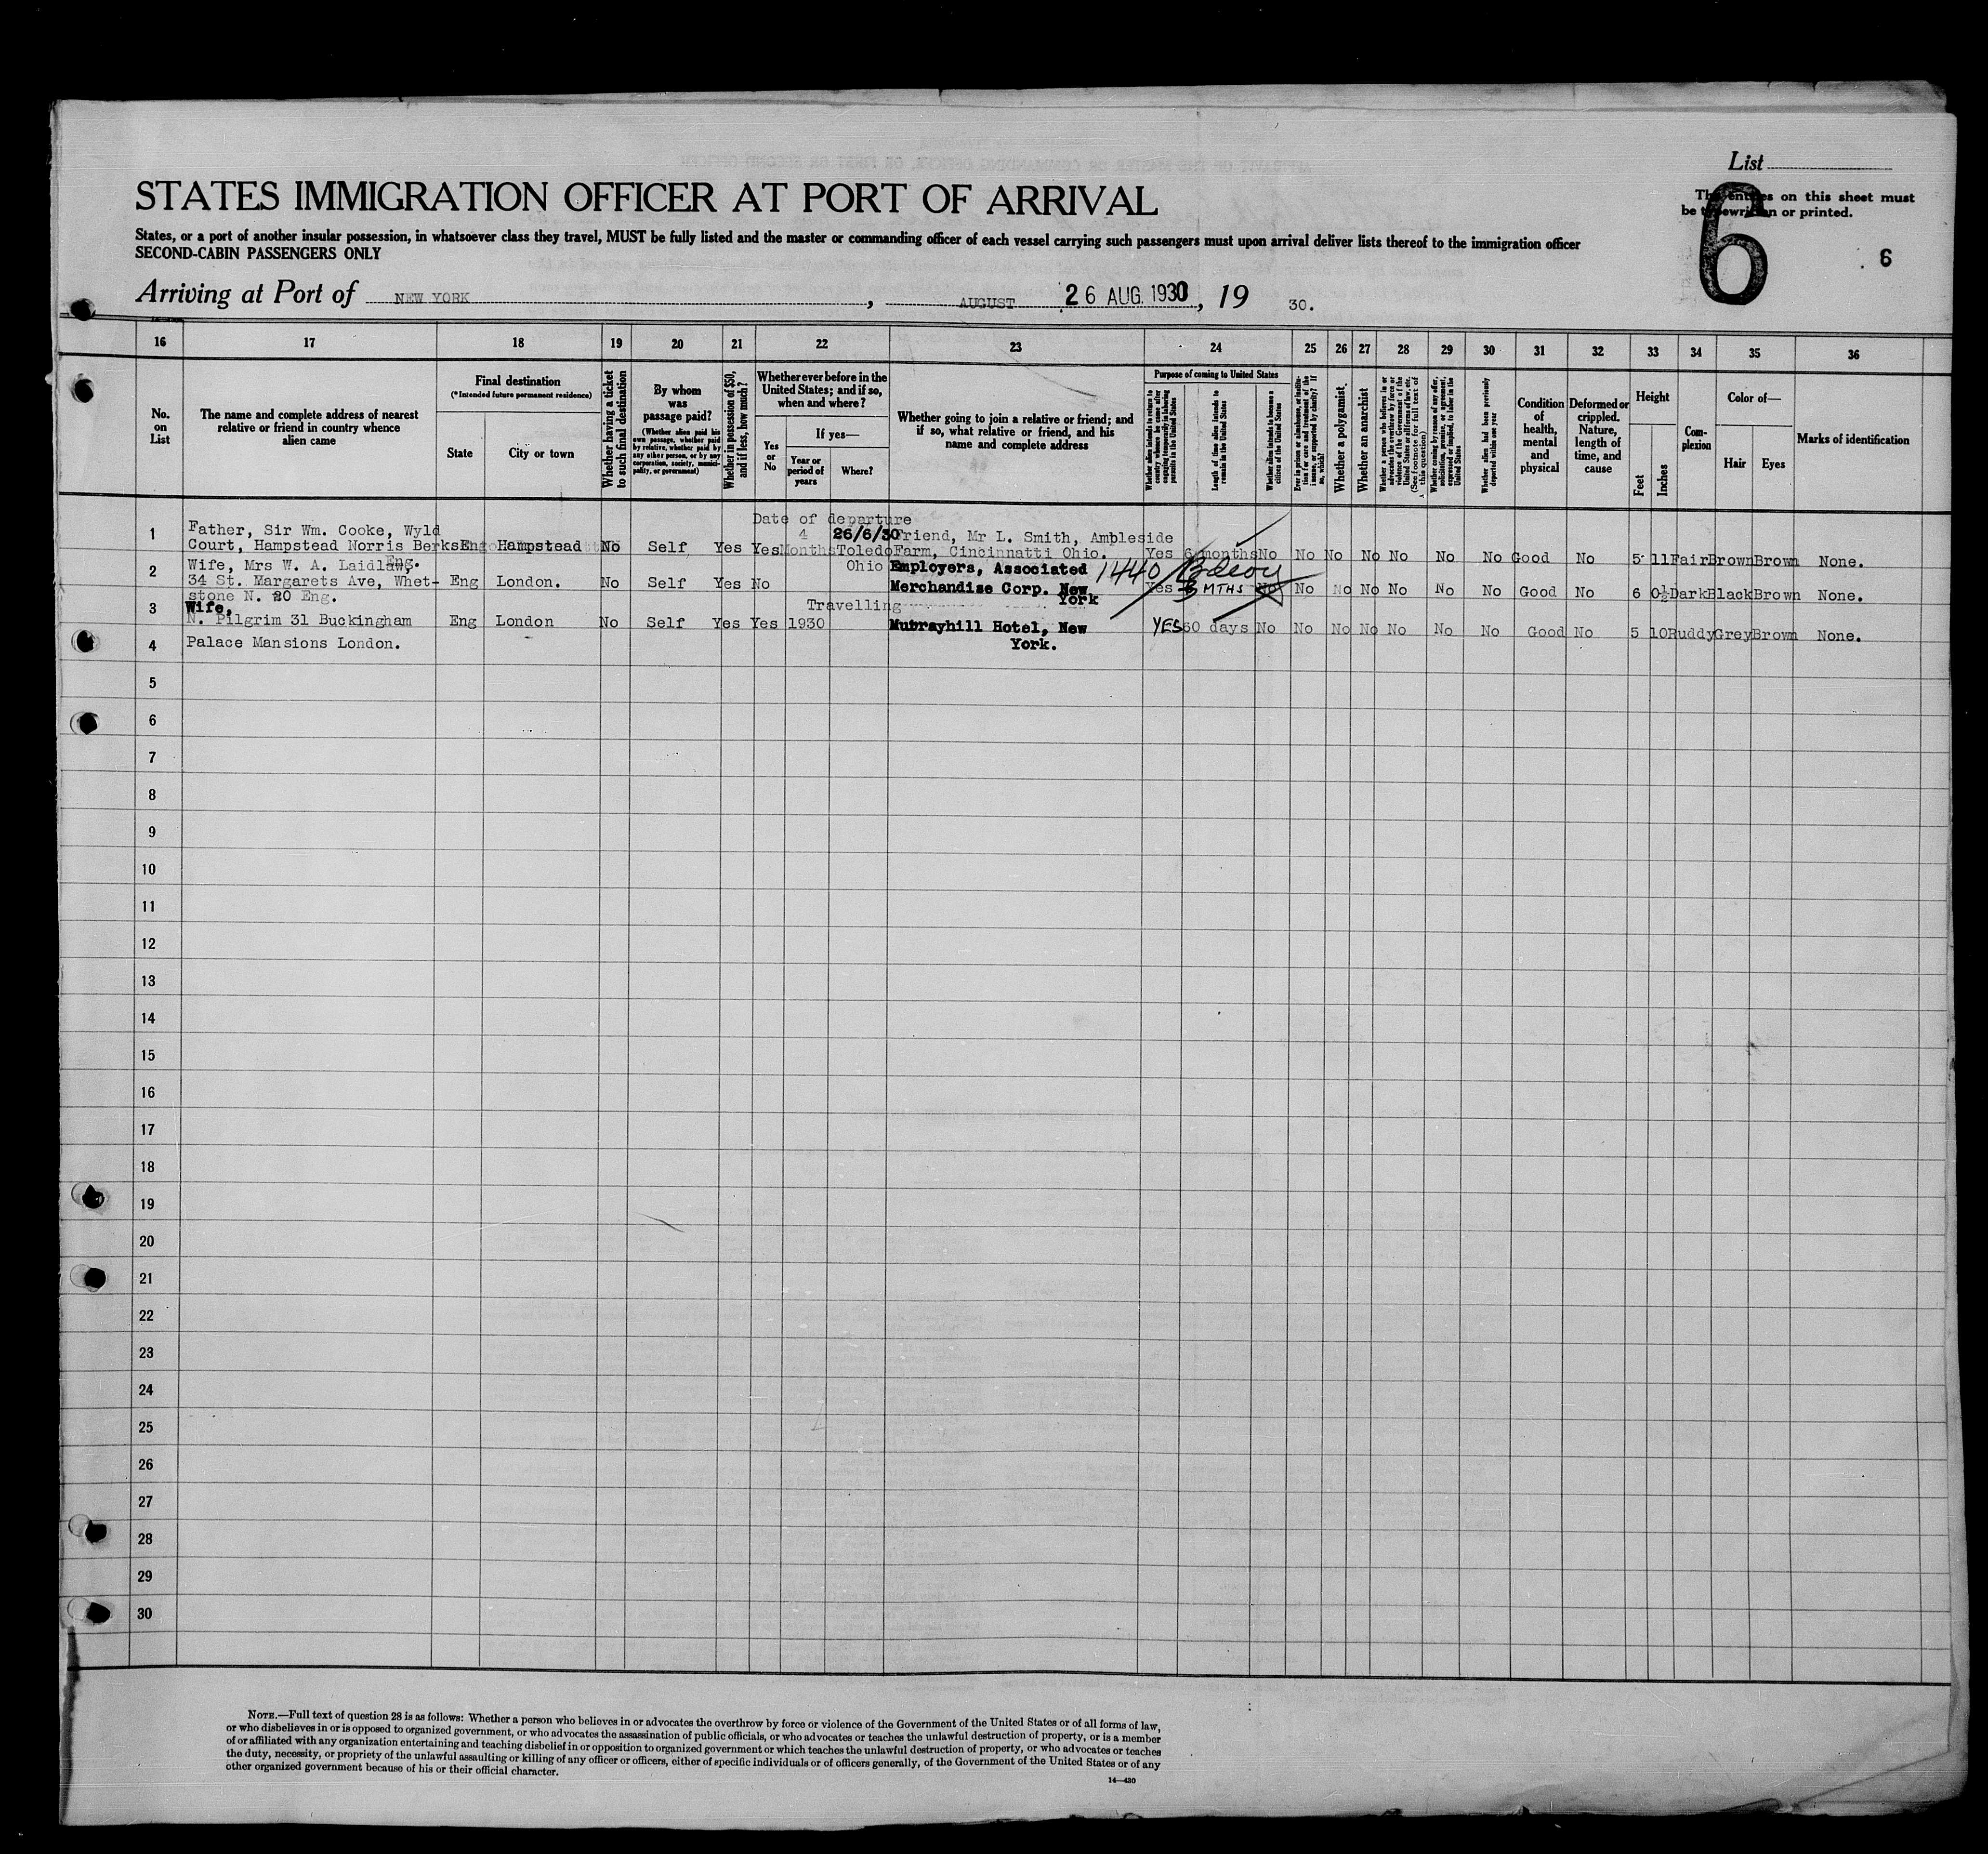 List
The entries on this sheet must
be typewritten or printed.
6
6
STATES IMMIGRATION OFFICER AT PORT OF ARRIVAL
States, or a port of another insular possession, in whatsoever class they travel, MUST be fully listed and the master or commanding officer of each vessel carrying such passengers must upon arrival deliver lists thereof to the immigration officer
SECOND-CABIN PASSENGERS ONLY
Arriving at Port of NEW YORK, AUGUST 26 AUG. 1930, 19 30.
16 17 18 19 20 21 22 23 24 25 26 27 28 29 30 31 32 33 34 35 36
No. on List
The name and complete address of nearest relative or friend in country whence alien came
Final destination
(*Intended future permanent residence)
State
City or town
Whether having a ticket to such final destination
By whom was passage paid?
(Whether alien paid his own passage, whether paid by relative, whether paid by any other person, or by any corporation, society, municipality, or government)
Whether in possession of $50, and if less, how much?
Whether ever before in the United States; and if so, when and where?
Yes or No
If yes—
Year or period of years
Where?
Whether going to join a relative or friend; and if so, what relative or friend, and his name and complete address
Purpose of coming to United States
Whether alien intends to return to country whence he came after engaging temporarily in laboring pursuits in the United States
Length of time alien intends to remain in the United States
Whether alien intends to become a citizen of the United States
Ever in prison or almshouse, or institution for care and treatment of the insane, or supported by charity? If so, which?
Whether a polygamist.
Whether an anarchist
Whether a person who believes in or advocates the overthrow by force or violence of the Government of the United States or all forms of law, etc. (See footnote for full text of this question)
Whether coming by reason of any offer, solicitation, promise, or agreement, expressed or implied, to labor in the United States
Whether alien had been previously deported within one year
Condition of health, mental and physical
Deformed or crippled. Nature, length of time, and cause
Height
Feet
Inches
Complexion
Color of—
Hair
Eyes
Marks of identification
Date of departure
1 Father, Sir Wm. Cooke, Wyld
Court, Hampstead Norris Berks Eng.
Eng Hampstead No Self Yes Yes 4 Months 26/6/30 Toledo Ohio
Friend, Mr L. Smith, Ambleside
Farm, Cincinnatti Ohio. Yes 6 months No No No No No No No Good No 5 11 Fair Brown Brown None.
2 Wife, Mrs W. A. Laidlaw,
34 St. Margarets Ave, Whet-
stone N. 20 Eng.
Eng London. No Self Yes No
Employers, Associated
1440
Merchandise Corp. New
York
Yes 3 MTHS No No No No No No No Good No 6 0½ Dark Black Brown None.
3 Wife,
N. Pilgrim 31 Buckingham
Eng London No Self Yes Yes 1930
Travelling
Murrayhill Hotel, New
York.
YES 60 days No No No No No No No Good No 5 10 Ruddy Grey Brown None.
4 Palace Mansions London.
5
6
7
8
9
10
11
12
13
14
15
16
17
18
19
20
21
22
23
24
25
26
27
28
29
30
NOTE.—Full text of question 28 is as follows: Whether a person who believes in or advocates the overthrow by force or violence of the Government of the United States or of all forms of law,
or who disbelieves in or is opposed to organized government, or who advocates the assassination of public officials, or who advocates or teaches the unlawful destruction of property, or is a member
of or affiliated with any organization entertaining and teaching disbelief in or opposition to organized government or which teaches the unlawful destruction of property, or who advocates or teaches
the duty, necessity, or propriety of the unlawful assaulting or killing of any officer or officers, either of specific individuals or of officers generally, of the Government of the United States or of any
other organized government because of his or their official character.
14—430